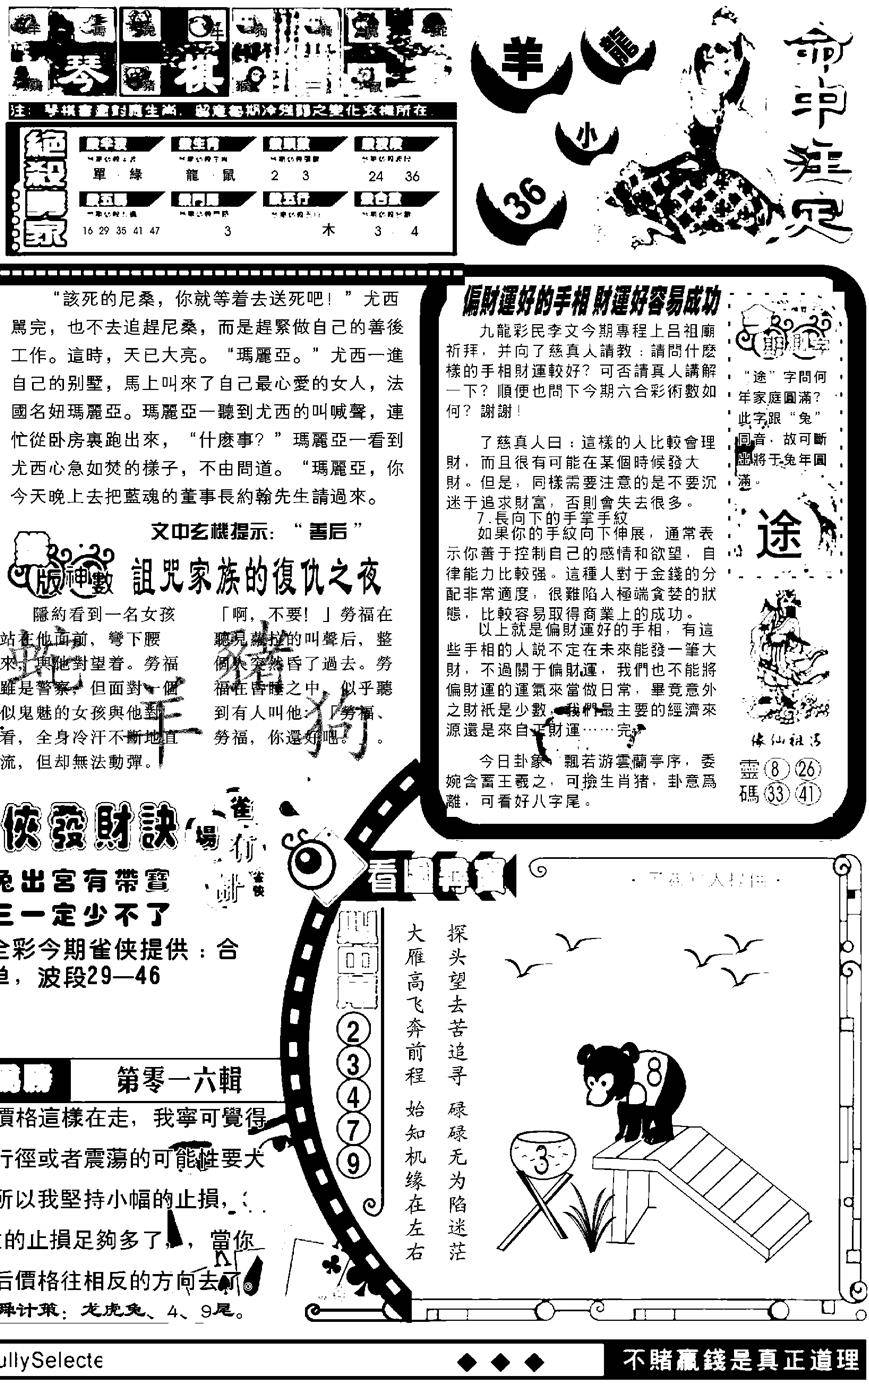 羊
小
36
命中注定
琴棋
注：琴棋書畫對應生肖，
絕殺專家
單·綠
龍·鼠
2 3
24 36
16 29 35 41 47
3
木
3·4
“該死的尼桑，你就等着去送死吧！”尤西
罵完，也不去追趕尼桑，而是趕緊做自己的善後
工作。這時，天已大亮。“瑪麗亞。”尤西一進
自己的别墅，馬上叫來了自己最心愛的女人，法
國名妞瑪麗亞。瑪麗亞一聽到尤西的叫喊聲，連
忙從卧房裏跑出來，“什麽事？”瑪麗亞一看到
尤西心急如焚的樣子，不由問道。“瑪麗亞，你
今天晚上去把藍魂的董事長約翰先生請過來。
文中玄機提示：“善后”
版神數
詛咒家族的復仇之夜
隱約看到一名女孩
站在他面前，彎下腰
來，與他對望着。勞福
雖是警察，但面對一個
似鬼魅的女孩與他對
看，全身冷汗不斷地直
流，但却無法動彈。
「啊，不要！」勞福在
聽見蘿拉的叫聲后，整
個人突然昏了過去。勞
福在昏睡之中，似乎聽
到有人叫他：「勞福、
勞福，你還好吧。」。
蛇
豬
羊
狗
偏財運好的手相 財運好容易成功
九龍彩民李文今期專程上呂祖廟
祈拜，并向了慈真人請教：請問什麽
樣的手相財運較好？可否請真人講解
一下？順便也問下今期六合彩術數如
何？謝謝！
了慈真人曰：這樣的人比較會理
財，而且很有可能在某個時候發大
財。但是，同樣需要注意的是不要沉
迷于追求財富，否則會失去很多。
7.長向下的手掌手紋
如果你的手紋向下伸展，通常表
示你善于控制自己的感情和欲望，自
律能力比較强。這種人對于金錢的分
配非常適度，很難陷人極端貪婪的狀
態，比較容易取得商業上的成功。
以上就是偏財運好的手相，有這
些手相的人説不定在未來能發一筆大
財，不過關于偏財運，我們也不能將
偏財運的運氣來當做日常，畢竟意外
之財衹是少數，我們最主要的經濟來
源還是來自正財運……完。
今日卦象：飄若游雲蘭亭序，委
婉含蓄王羲之，可撿生肖猪，卦意爲
離，可看好八字尾。
“途”字問何
年家庭圓滿？
此字跟“兔”
同音，故可斷
將于兔年圓
滿。
途
靈碼
8 26
33 41
俠發財訣
兔出宮有帶寶
三一定少不了
全彩今期雀侠提供：合
单，波段29—46
第零一六輯
價格這樣在走，我寧可覺得
行徑或者震蕩的可能性要大
所以我堅持小幅的止損，
的止損足夠多了，當你
后價格往相反的方向去了。
舜计策：龙虎兔、4、9尾。
2
3
4
7
9
探头望去苦追寻 碌碌无为陷迷茫
大雁高飞奔前程 始知机缘在左右
8
3
ullySelecte
不賭贏錢是真正道理